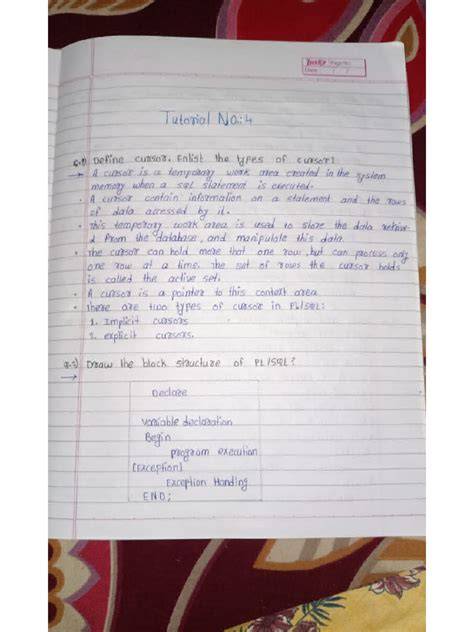 Page No.
Date / /
Tutorial No.:4
Q.1) Define cursor. Enlist the types of cursor?
→ A cursor is a temporary work area created in the system
memory when a sql statement is executed.
• A cursor contain information on a statement and the rows
of data accessed by it.
• This temporary work area is used to store the data retrieve
d from the database, and manipulate this data.
• The cursor can hold more that one row, but can process only
one row at a time. The set of rows the cursor holds
is called the active set.
• A cursor is a pointer to this context area.
• There are two types of cursor in PL/SQL:
1. Implicit cursors
2. explicit cursors.
Draw the block structure of PL/SQL?
→
Declare
variable declaration
Begin
program execution
[Exception]
Exception Handing
END;